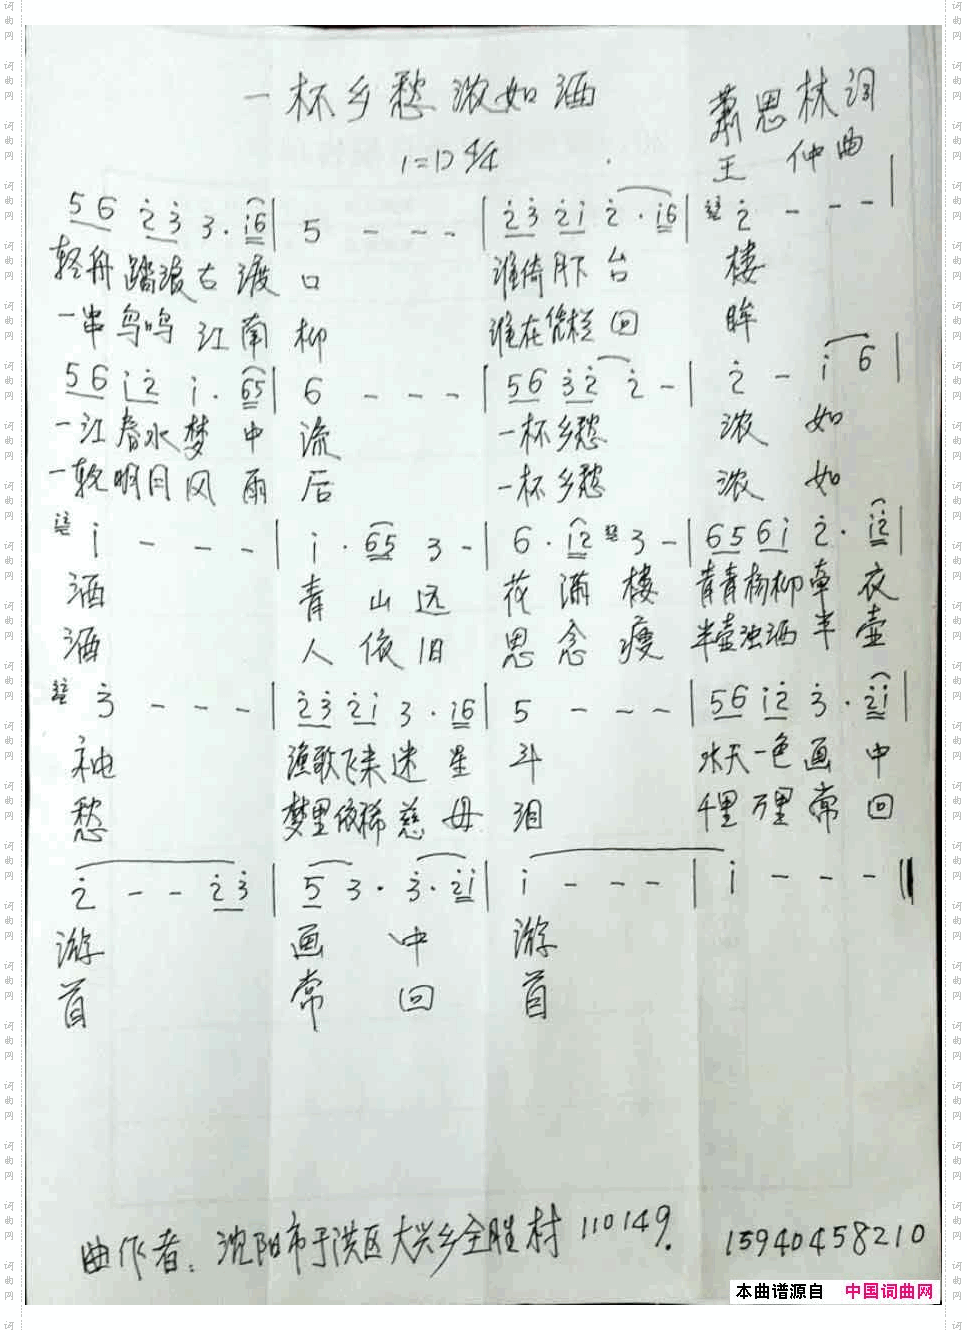 一杯乡愁浓如酒
萧思林词
1=D 4/4
王仲曲
5 6 2̇ 3̇ 3. i̇6 | 5 - - - | 2̇ 3̇ 2̇ i̇ 2̇ · i̇6 | 2̇ - - - |
轻舟踏浪古渡口 谁倚月下台 楼
一串鸟鸣江南柳 谁在凭栏回 眸
5 6 i̇ 2̇ i̇ . 65 | 6 - - - | 56 3̇2̇ 2̇ - | 2̇ - i̇ 6 |
一江春水梦中流 一杯乡愁 浓 如
一轮明月风雨后 一杯乡愁 浓 如
i̇ - - - | i̇ · 65 3 - | 6 · i̇2̇ 3 - | 65 6i̇ 2̇ · i̇2̇ |
酒 青山远 花满楼 青青杨柳牵衣
酒 人依旧 思念瘦 半壶浊酒半壶
3̇ - - - | 2̇3̇ 2̇i̇ 3 · i̇6 | 5 - - - | 56 i̇2̇ 3̇ · 2̇i̇ |
袖 渔歌飞来迷星斗 水天一色画中
愁 梦里依稀慈母泪 千里万里常回
2̇ - - 2̇3̇ | 5 3 · 3̇ · 2̇i̇ | i̇ - - - | i̇ - - - ‖
游 画中 游
首 常回 首
曲作者：沈阳市于洪区大兴乡全胜村 110149. 15940458210
本曲谱源自 中国词曲网